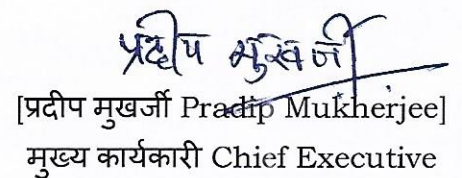 प्रदीप मुखर्जी
[प्रदीप मुखर्जी Pradip Mukherjee]
मुख्य कार्यकारी Chief Executive